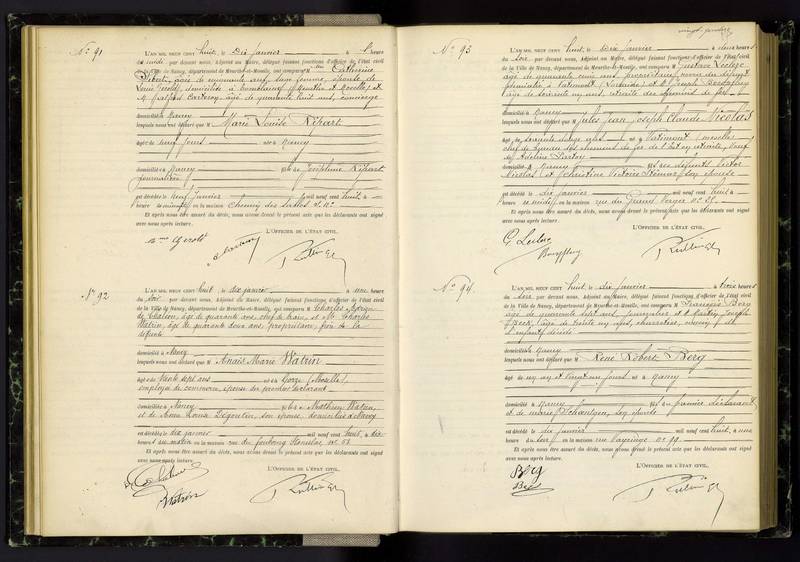 N° 91
L'AN MIL NEUF CENT huit, le Dix janvier à heures
du midi, par devant nous, Adjoint au Maire, délégué faisant fonctions d'officier de l'état civil
de la Ville de Nancy, département de Meurthe-et-Moselle, ont comparu M Catherine
âgée de cinquante neuf, sage femme, épouse de
domiciliée à (Meurthe et Moselle) et
M âgé de quarante huit ans, concierge
domicilié à Nancy
lesquels nous ont déclaré que M Marie Louise Ripart
âgé de neuf jours né à Nancy
domicilié à Nancy fils de Joséphine Ripart
journalière
est décédé le neuf janvier mil neuf cent huit, à
heure en la maison Chemin des Sables
Et après nous être assuré du décès, nous avons dressé le présent acte que les déclarants ont signé
avec nous après lecture.
L'OFFICIER DE L'ÉTAT CIVIL.
N° 92
L'AN MIL NEUF CENT huit, le dix janvier à une heure
du soir par devant nous, Adjoint au Maire, délégué faisant fonctions d'officier de l'état civil
de la Ville de Nancy, département de Meurthe-et-Moselle, ont comparu M Charles
âgé de quarante ans, chef de train, et M. Charles
Watrin, âgé de quarante deux ans, propriétaire, frère de la
défunte
domicilié à Nancy
lesquels nous ont déclaré que M Anaïs Marie Watrin
âgé de trente sept ans né à Gorze (Moselle),
employée de commerce, épouse du premier déclarant
domicilié à Nancy fils de Mathieu Watrin,
et de Louise son épouse, domiciliés à Nancy
est décédé le dix janvier mil neuf cent huit, à dix
heures du matin en la maison rue du faubourg Stanislas n°
Et après nous être assuré du décès, nous avons dressé le présent acte que les déclarants ont signé
avec nous après lecture.
L'OFFICIER DE L'ÉTAT CIVIL.
Watrin
N° 93
L'AN MIL NEUF CENT huit, le Dix janvier à deux heures
du soir, par devant nous, Adjoint au Maire, délégué faisant fonctions d'officier de l'état civil
de la Ville de Nancy, département de Meurthe-et-Moselle, ont comparu M Gustave Leclerc
âgé de quarante cinq ans, propriétaire, neveu du défunt
domicilié à Vatimont (Lorraine) et M Joseph
âgé de soixante ans, retraité des chemins de fer
domicilié à Nancy
lesquels nous ont déclaré que M Jules Jean Joseph Claude Nicolas
âgé de soixante ans né à Vatimont (Moselle)
chef de bureau des chemins de fer de l'Est en retraite, veuf
de Adeline
domicilié à Nancy fils des défunts Victor
Nicolas et Christine Victoire son épouse
est décédé le dix janvier mil neuf cent huit à
heure en la maison rue du Grand Verger n°
Et après nous être assuré du décès, nous avons dressé le présent acte que les déclarants ont signé
avec nous après lecture.
L'OFFICIER DE L'ÉTAT CIVIL.
G Leclerc
N° 94
L'AN MIL NEUF CENT huit, le dix janvier à trois heures
du soir par devant nous, Adjoint au Maire, délégué faisant fonctions d'officier de l'état civil
de la Ville de Nancy, département de Meurthe-et-Moselle, ont comparu M François Berg
âgé de quarante sept ans, journalier et Joseph
âgé de trente ans, charretier, de
l'enfant décédé
domicilié à Nancy
lesquels nous ont déclaré que M René Robert Berg
âgé de un an et vingt un jours né à Nancy
domicilié à Nancy fils du premier déclarant
et de Marie son épouse
est décédé le dix janvier mil neuf cent huit, à une
heure du soir en la maison rue n° 99
Et après nous être assuré du décès, nous avons dressé le présent acte que les déclarants ont signé
avec nous après lecture.
L'OFFICIER DE L'ÉTAT CIVIL.
Berg